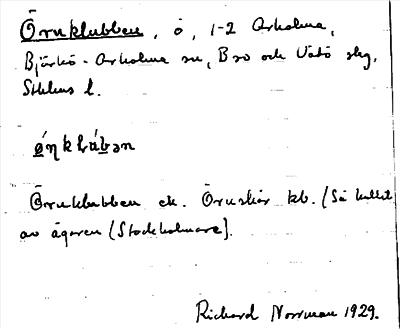 Örnklubben, ö, 1-2 Arholma,
Björkö-Arholma sn, Bro och Vätö skg,
Sthlms l.
Örnklubben ek. Örnskär kb. (Så kallat
av ägaren (Stockholmare).
Richard Norrman 1929.